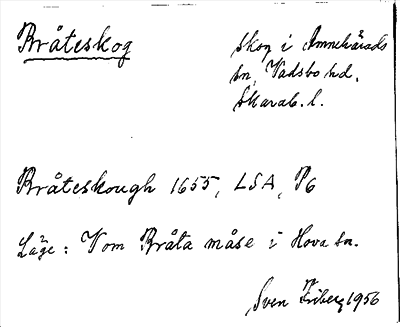 Bråteskog
skog i Amnehärads
sn, Vadsbo hd.
Skarab. l.
Bråteskough 1655, LSA, P6
Läge: V om Bråta måse i Hova sn.
Sven Friberg 1956